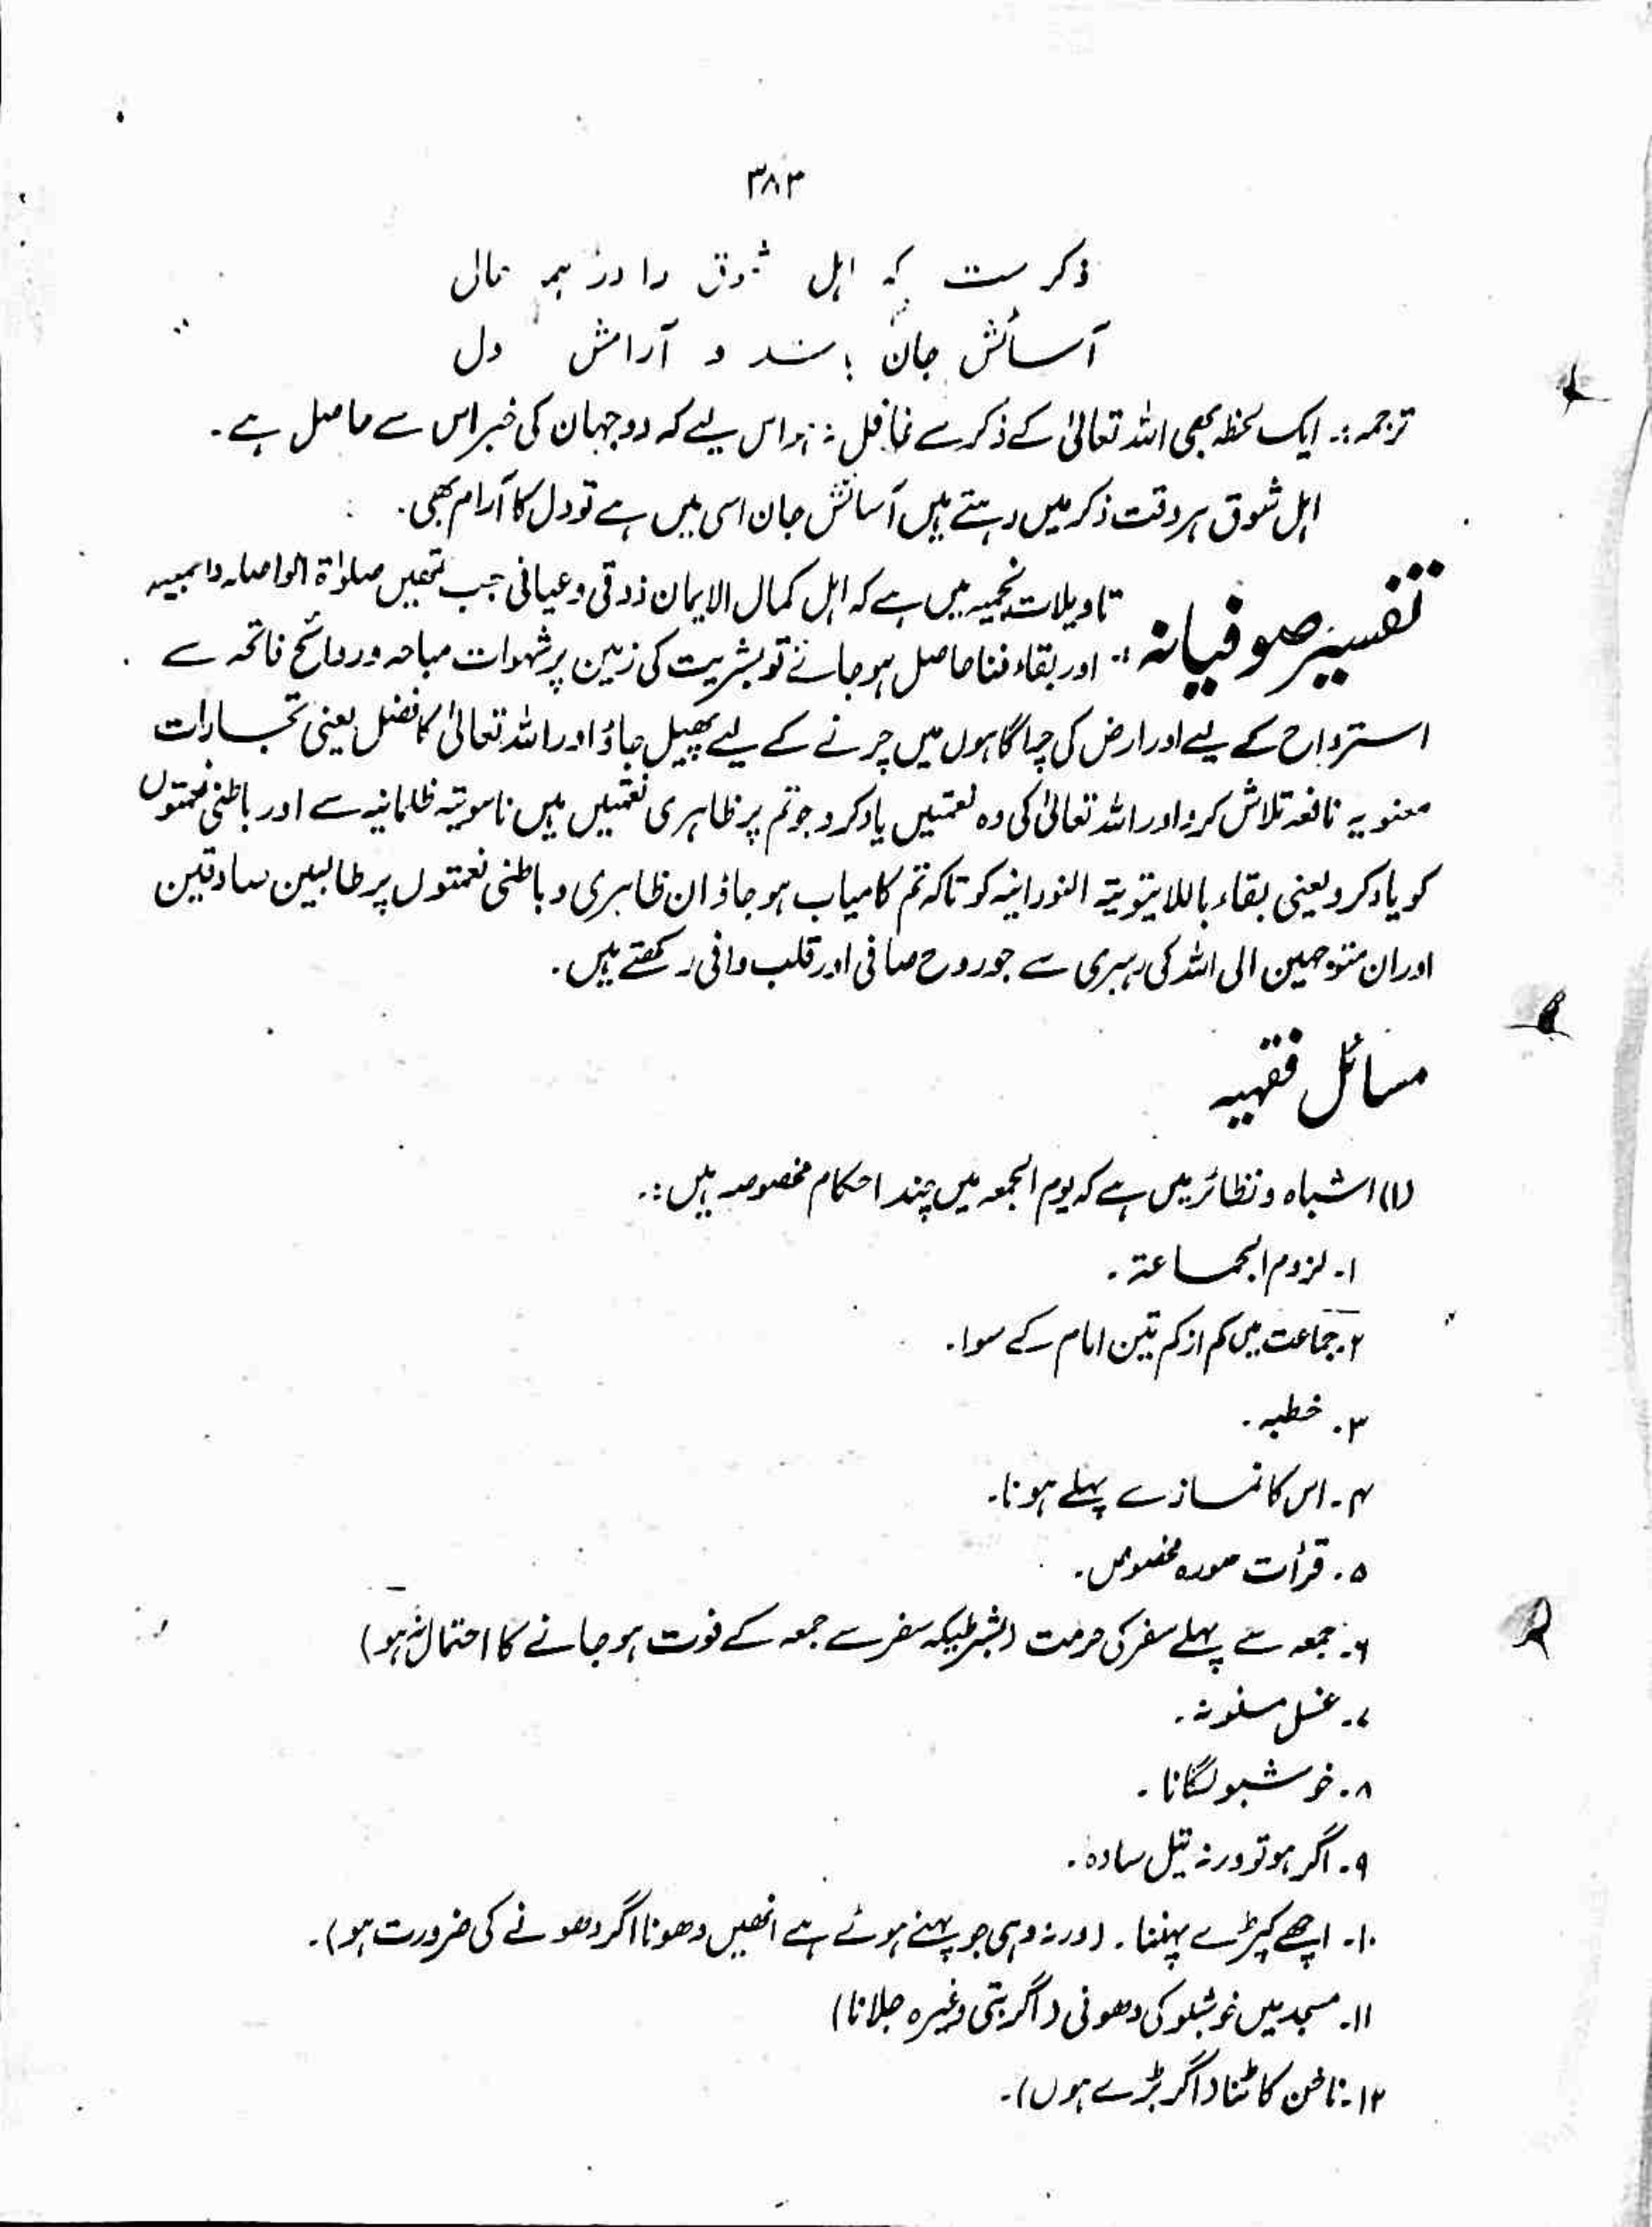 ۳۸۳
ذکر ست کہ اہل شوق را در ہمہ حال
آسائش جان باشد و آرامش دل
ترجمہ:۔ ایک لحظہ بھی اللہ تعالیٰ کے ذکر سے غافل نہ ہو اس لیے کہ دو جہان کی خبر اس سے حاصل ہے۔
اہل شوق ہر وقت ذکر میں رہتے ہیں آسائش جان اسی میں ہے تو دل کا آرام بھی۔
تفسیر صوفیانہ :۔ تاویلات نجمیہ میں ہے کہ اہل کمال الایمان ذوقی و عیانی جب تمھیں صلوٰۃ الواصلہ دائمیہ
اور بقاء فنا حاصل ہو جائے تو بشریت کی زمین پر شہوات مباحہ و روائح فاتحہ سے
استرواح کے لیے اور ارض کی چراگاہوں میں چرنے کے لیے پھیل جاؤ اور اللہ تعالیٰ کا فضل یعنی تجارات
معنویہ نافعہ تلاش کرو اور اللہ تعالیٰ کی وہ نعمتیں یاد کرو جو تم پر ظاہری نعمتیں ہیں ناسوتیہ ظلمانیہ سے اور باطنی نعمتوں
کو یاد کرو یعنی بقاء باللاہوتیۃ النورانیہ کو تاکہ تم کامیاب ہو جاؤ ان ظاہری و باطنی نعمتوں پر طالبین صادقین
اور ان متوجہین الی اللہ کی رہبری سے جو روح صافی اور قلب وافی رکھتے ہیں۔
مسائل فقہیہ
(۱) اشباہ و نظائر میں ہے کہ یوم الجمعہ میں چند احکام مخصوصہ ہیں:۔
۱۔ لزوم الجماعۃ۔
۲۔ جماعت میں کم از کم تین امام کے سوا۔
۳۔ خطبہ۔
۴۔ اس کا نماز سے پہلے ہونا۔
۵۔ قرأت سورہ مخصوص۔
۶۔ جمعہ سے پہلے سفر کی حرمت (بشرطیکہ سفر سے جمعہ کے فوت ہو جانے کا احتمال نہ ہو)
۷۔ غسل مسنونہ۔
۸۔ خوشبو لگانا۔
۹۔ اگر ہو تو ورنہ تیل سادہ۔
۱۰۔ اچھے کپڑے پہننا۔ (ورنہ وہی جو پہنے ہوئے ہے انھیں دھونا اگر دھونے کی ضرورت ہو)۔
۱۱۔ مسجد میں خوشبو کی دھونی (اگر بتی وغیرہ جلانا)
۱۲۔ ناخن کاٹنا (اگر بڑے ہوں)۔